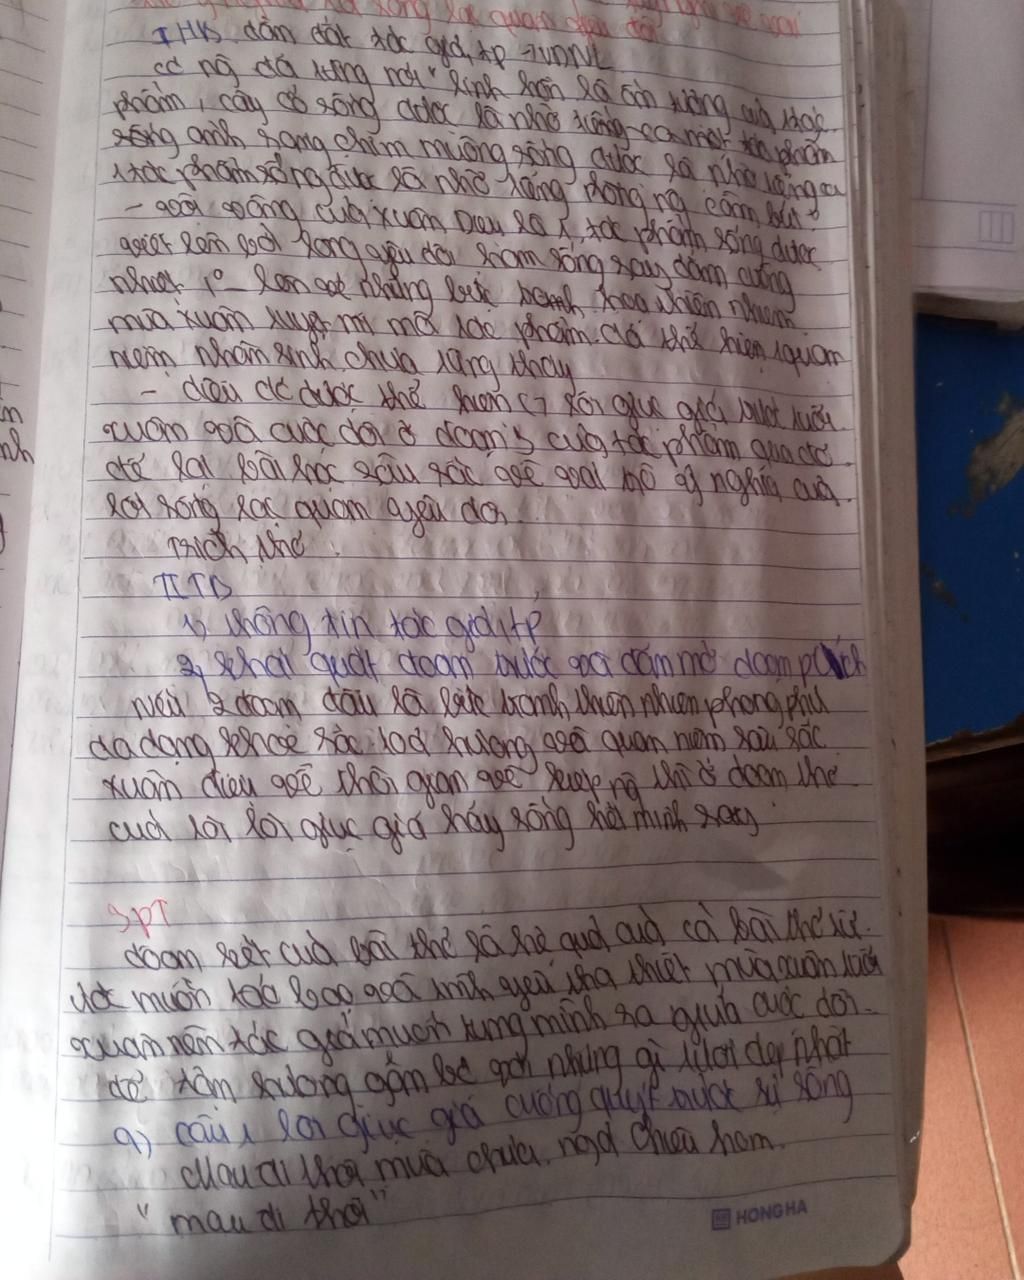 I MB dẫn dắt tác giả, tp → VĐNL
có ng đã từng nói " linh hồn là ấn tượng của tác
phẩm, cây cỏ sống được là nhờ
sống ánh sáng chim muông sống được là nhờ tiếng ca
1 tác phẩm sống được là nhờ lòng ng cầm bút"
- vội vàng của xuân Diệu là 1 tác phẩm sống được
viết lên bởi lòng yêu đời ham sống say đắm cuồng
nhiệt những bức tranh thiên nhiên
mùa xuân tác phẩm đã thể hiện 1 quan
niệm nhân sinh chưa từng thấy
- điều đó được thể hiện lời giục giã trước tuổi
xuân và cuộc đời ở đoạn 3 của tác phẩm qua đó
để lại bài học sâu sắc về vai trò ý nghĩa của
lối sống lạc quan yêu đời.
Trích thơ
II TB
1) thông tin tác giả, tp
2) khái quát đoạn trước và dẫn mở đoạn ptích
Nếu 2 đoạn đầu là bức tranh thiên nhiên phong phú
đa dạng khoe sắc toả hương và quan niệm sâu sắc
xuân diệu về thời gian về thì ở đoạn thơ
cuối là lời giục giã hãy sống hết mình
3 PT
đoạn kết của bài thơ là hệ quả của cả bài thơ từ
ước muốn táo bạo và tình yêu tha thiết mùa xuân tuổi
xuân nên tác giả muốn tung mình ra giữa cuộc đời
để tận hưởng gắn bó với những gì tươi đẹp nhất
a) câu 1 lời giục giã cuống quýt trước sự sống
Mau đi thôi mùa chưa ngả chiều hôm.
" mau đi thôi"
HONG HA